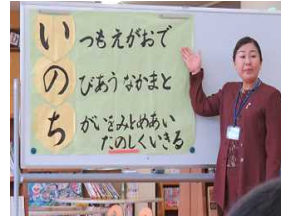 いつもえがおで
のびあうなかまと
ちがいをみとめあい
たのしくいきる